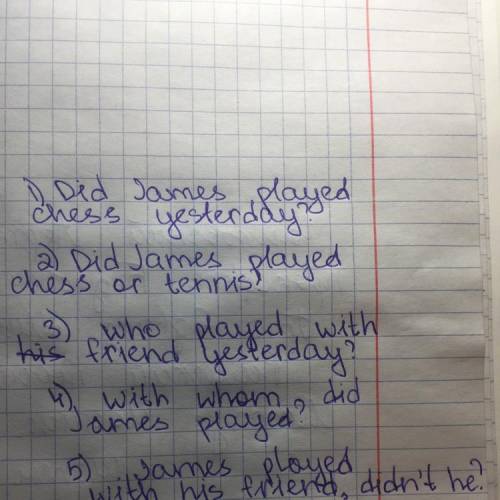 1) Did James played
chess yesterday?
2) Did James played
chess or tennis?
3) who played with
his friend yesterday?
4) with whom, did
James played?
5) James played
with his friend, didn't he?